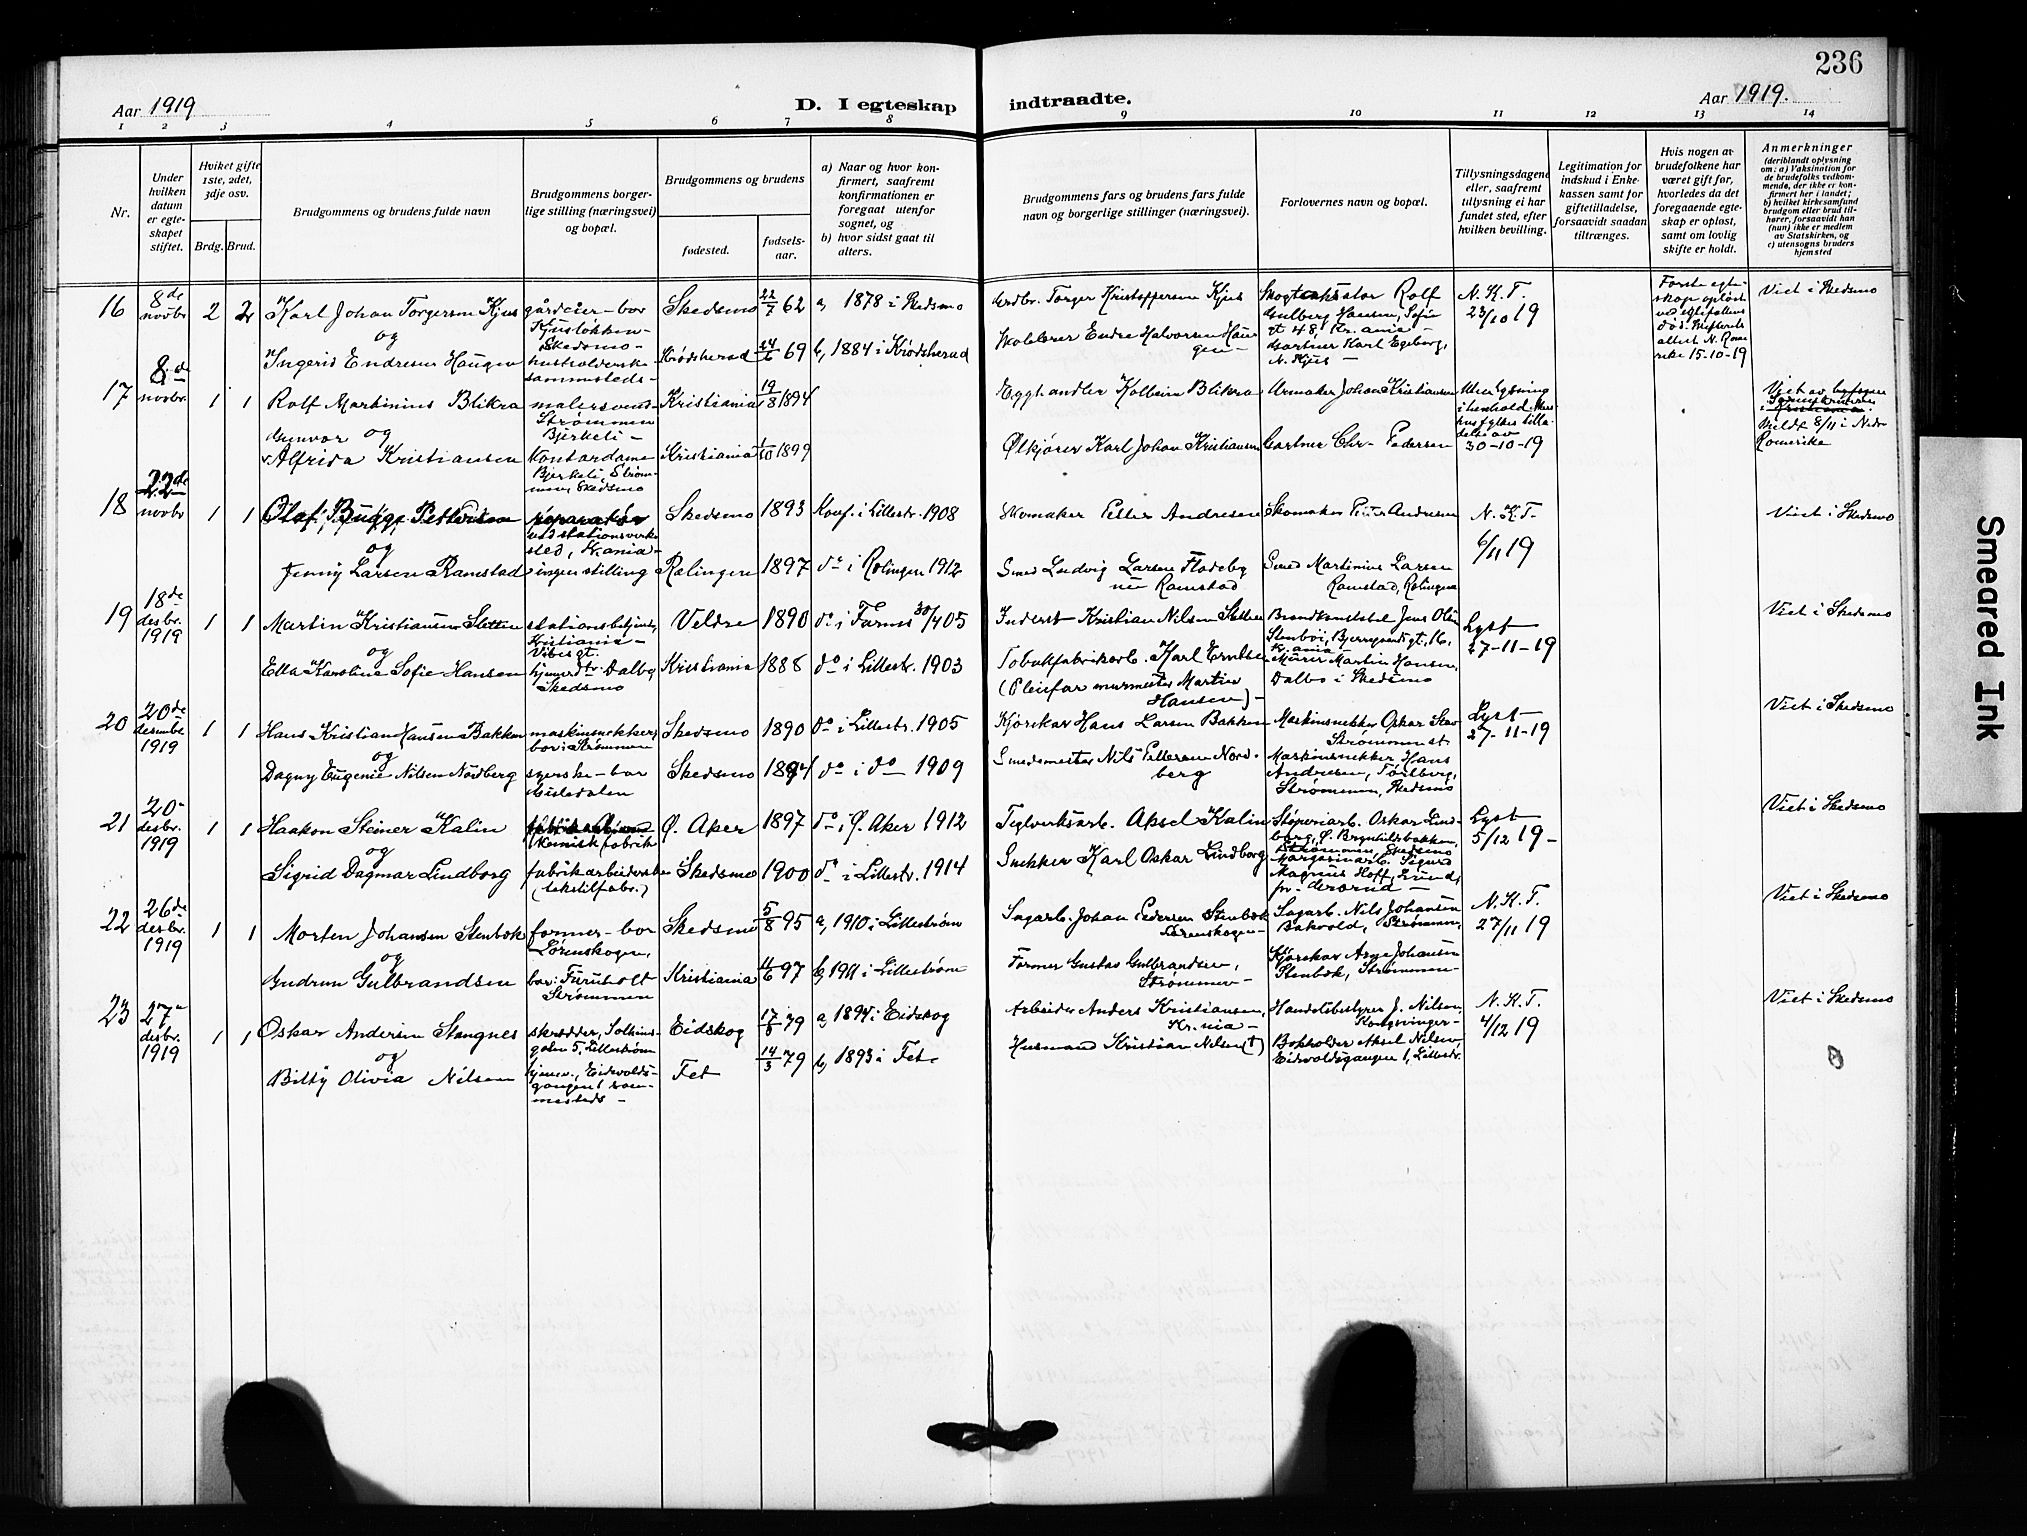 236
Aar 1919
D. I egteskap
indtraadte.
Aar 1919.
1 2 3 4 5 6 7 8
9 10 11 12 13 14
Nr.
Under hvilken datum er egte-skapet stiftet.
Hviket gifte 1ste, 2det, 3dje osv.
Brdg. Brud.
Brudgommens og brudens fulde navn
Brudgommens borger-lige stilling (næringsvei) og bopæl.
Brudgommens og brudens
fødested.
fødsels-aar.
a) Naar og hvor kon-firmert, saafremt konfirmationen er foregaat utenfor sognet, og
b) hvor sidst gaat til alters.
Brudgommens fars og brudens fars fulde navn og borgerlige stillinger (næringsvei).
Forlovernes navn og bopæl.
Tillysningsdagene eller, saafremt tillysning ei har fundet sted, efter hvilken bevilling.
Legitimation for indskud i Enke-kassen samt for giftetilladelse, forsaavidt saadan tiltrænges.
Hvis nogen av brudefolkene har været gift før, hvorledes da det foregaaende egte-skap er opløst, samt om lovlig skifte er holdt.
Anmerkninger
(deriblandt oplysning om: a) Vaksination for de brudefolks vedkom-mende, der ikke er kon-firmert her i landet; b) hvilket kirkesamfund brudgom eller brud til-hører, forsaavidt han (hun) ikke er medlem av Statskirken, og c) utensogns bruders hjemsted
16 8de novbr 2 2 Karl Johan Torgersen Kjus gårdeier - bor Skedsmo 22/7 62 a, 1878 i Skedsmo
Torger Kristoffersen Kjus
Rolf Gulberg Hansen, Sofie gt 48, Kr.ania -
N. K. T. 23/10 19
Viet i Skedsmo
og
Ingerid Endresen Haugen
Skedsmo -
sammesteds -
Krødsherad 24/6 69 b, 1884 i Krødsherad
Endre Halvorsen Haugen -
Gartner Karl Egeberg, N. Kjus -
15-10-19
17 8de novbr 1 1 Rolf Martinius Blikra malersvend Strømmen Bjerkeli - Kristiania 19/8 1894
Egghandler Kolbein Blikra
Urmaker Johan Kristiansen
30-10-19
Romerike
Gunvor og
Alfrida Kristiansen Kontordame Bjerkeli, Strømmen, Skedsmo Kristiania 1/10 1899
Ølkjører Karl Johan Kristiansen
Gartner Chr. Pedersen
18 22de novbr 1 1 Olaf Bugge Pettersen reparatør ved stationsverksted, Kr.ania - Skedsmo 1893 Konf. i Lillestr. 1908
Skomaker Petter Andresen
Skomaker Petter Andresen
N. K. T. 6/11 19
Viet i Skedsmo
og
Jenny Larsen Ramstad ingen stilling Rælingen 1897 do i Rælingen 1912
Smed Ludvig Larsen Fladeby nu Ramstad
Smed Martinius Larsen Ramstad, Rælingen
19 18de desbr. 1919 1 1 Martin Kristiansen Sletten stationsbetjent, Kristiania - Vibes gt. Veldre 1890 do i 30/4 05
Inderst Kristian Nilsen Sletten
Brandkonstabel Jens Olsen Stenbøi, Bjerregaards gt. 16, Kr.ania -
Lyst 27-11-19
Viet i Skedsmo
og
Ella Karoline Sofie Hansen hjemme dtr. Dalbo, Skedsmo Kristiania 1888 do i Lillestr. 1903
Tobakfabrikarb. Karl Erntsen
(Pleiefar murmester Martin Hansen) -
Murer Martin Hansen, Dalbo i Skedsmo
20 20de desember 1919 1 1 Hans Kristian Hansen Bakken maskinsnekker, bor i Strømmen Skedsmo 1890 do i Lillestr. 1905
Kjørekar Hans Larsen Bakken
Maskinsnekker Oskar
Strømmen st.
Lyst 27-11-19
Viet i Skedsmo
og
Dagny Eugenie Nilsen Nordberg syerske - bor Skedsmo 1894 do i do 1909
Smedmester Nils Pettersen Nordberg
Maskinsnekker Hans Andresen,
Strømmen, Skedsmo
21 20- desbr. 1919 1 1 Haakon Steiner Kalin kemisk fabrik Ø. Aker 1897 do i Ø. Aker 1912
Teglverksarb. Aksel Kalin
Støperiarb. Oskar Lindborg, Ø. Brynhildsbakken, Strømmen, Skedsmo
Lyst 5/12 19 -
Viet i Skedsmo
og
Sigrid Dagmar Lindborg fabrikarbeiderske (tekstilfabr.) Skedsmo 1900 do i Lillestr. 1914
Snekker Karl Oskar Lindborg
Margarinarb. Sigurd Magnus Hoff,
22 26de desbr. 1919 1 1 Morten Johansen Stenbok former - bor Lørenskogen, Skedsmo 5/8 95 a, 1910 i Lillestrøm
Sagarb. Johan Pedersen Stenbok Lørenskogen -
Sagarb. Nils Johansen Bakvold, Strømmen,
N. K. T. 27/11 19
Viet i Skedsmo
og
Gudrun Gulbrandsen bor: Furuholt Strømmen Kristiania 11/6 97 b, 1911 i Lillestrøm
Former Gustav Gulbrandsen, Strømmen -
Kjørekar Arne Johansen Stenbok, Strømmen -
23 27- desbr. 1919 1 1 Oskar Andersen Stangnes skrædder, Solheimsgaten 5, Lillestrøm Eidskog 17/8 79 a, 1894 i Eidskog
Arbeider Anders Kristiansen, Kr.nia -
Handelsbestyrer J. Nilsen, Kongsvinger -
N. K. T. 4/12 19
Viet i Skedsmo
og
Bitty Olivia Nilsen hjemv., Eidsvoldsgangen 1 sammesteds - Fet 14/3 79 b, 1893 i Fet -
Husmand Kristian Nilsen (†)
Bokholder Aksel Nilsen, Eidsvoldsgangen 1, Lillestr.
Smeared Ink